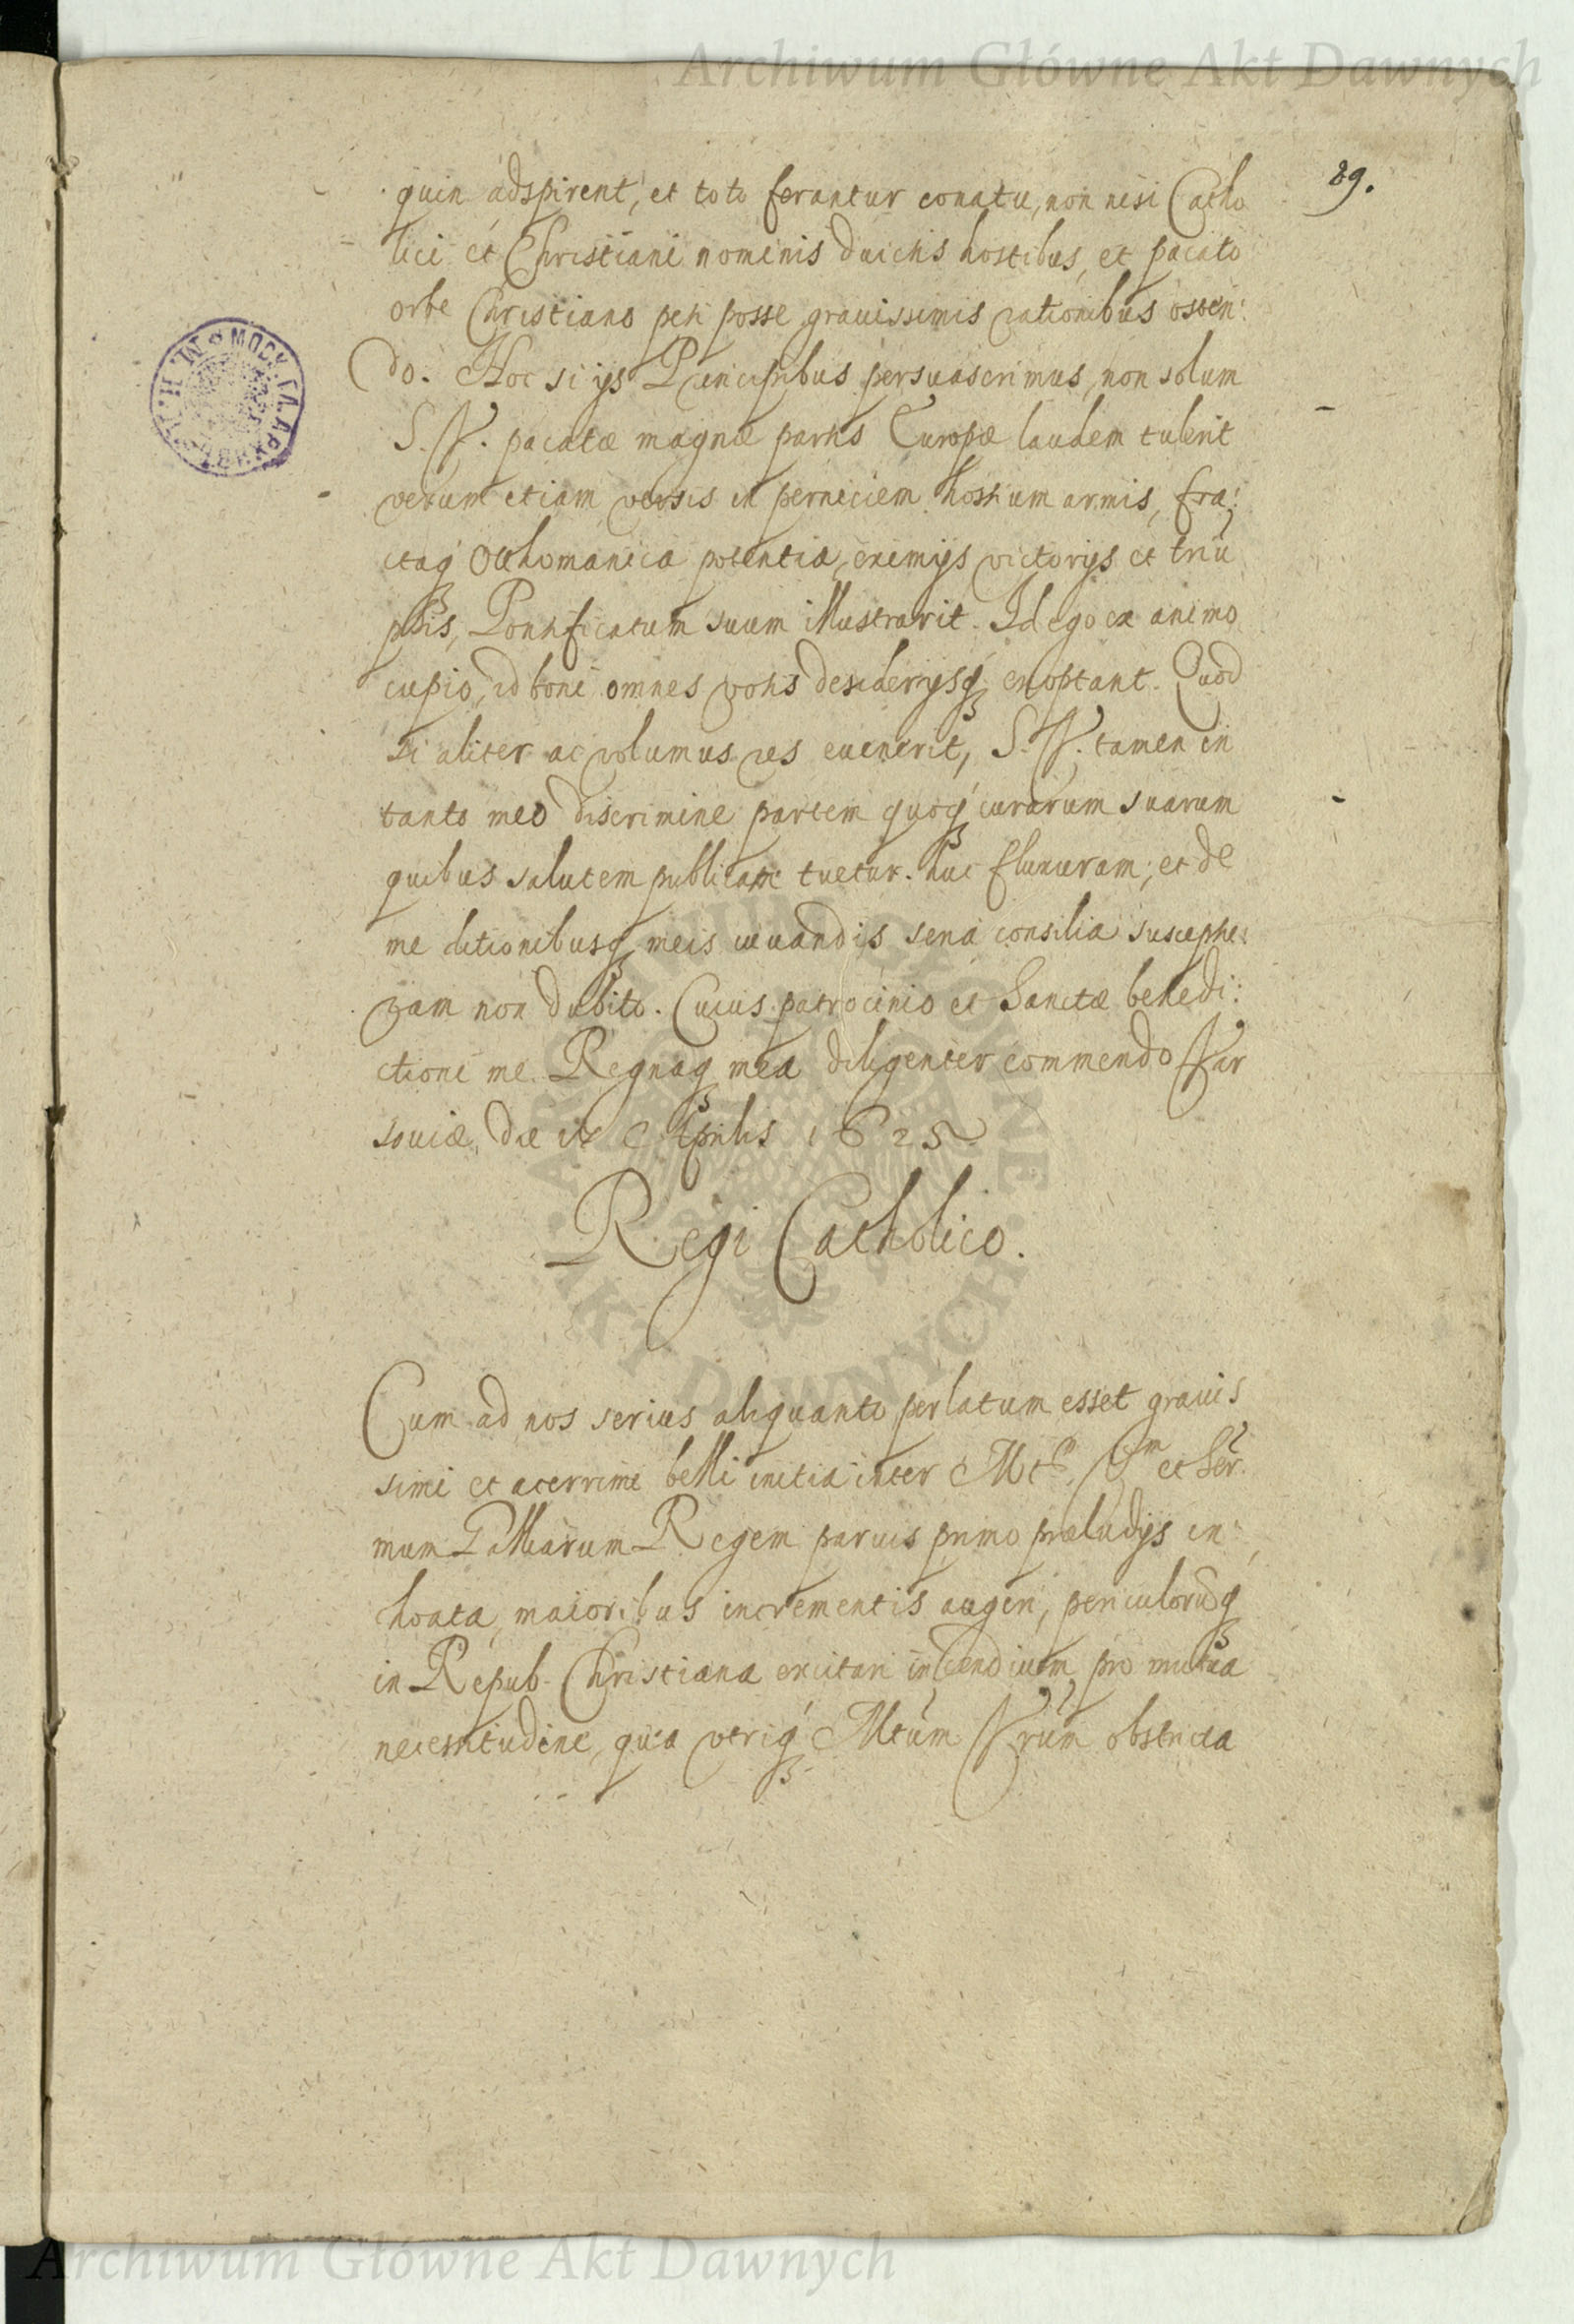 Archiwum Główne Akt Dawnych
89.
quin adspirent, et toto ferantur conatu, non nisi Catho
lici et Christiani nominis deuictis hostibus, et pacato
orbe Christiano peti posse grauissimis rationibus osten:
do. Hoc si ijs Principibus persuaserimus, non solum
S. V. pacatæ magnæ partis Europæ laudem tulerit
verum etiam versis in perniciem hostium armis, fra:
ctaq́ Otthomanica potentia, eximijs victorijs et triū
phis, Pontificatum suum illustrarit. Id ego ex animo
cupio, id boni omnes votis desiderijsq́ exoptant. Quod
si aliter ac volumus res euenerit, S. V. tamen in
tanto meo discrimine partem quoq́ curarum suarum
quibus salutem publicam tuetur. huc
me ditionibusq́ meis iuuandis seria consilia susceptu:
ram non dubito. Cuius patrocinio et Sanctæ benedi:
ctioni me Regnaq́ mea diligenter commendo Var
souiæ, die Aprilis 1625
Regi Catholico.
Cum ad nos serius aliquanto perlatum esset grauis
simi et acerrimi belli initia inter Mtē. Vm et Ser.
mum Galliarum Regem paruis primo præludijs in:
hoata, maioribus incrementis augeri, periculorūq́
in Repub. Christiana excitari incendium, pro mutua
necessitudine, qua vtriq́ Mtūm Vrūm obstricta
МОСК. ГЛ. АРХИВЪ М. И. Д.
ARCHIWUM GŁÓWNE AKT DAWNYCH
Archiwum Główne Akt Dawnych